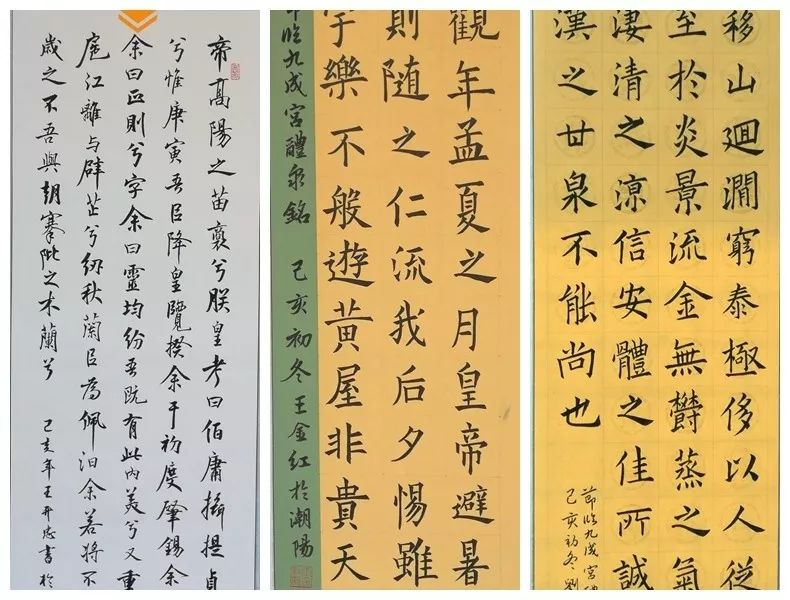 帝高陽之苗裔兮朕皇考曰伯庸攝提貞
兮惟庚寅吾㠯降皇覽揆余于初度肇錫余
余曰正則兮字余曰靈均紛吾既有此內美兮又重
扈江離与辟芷兮紉秋蘭㠯為佩汩余若將不
歲之不吾與朝搴阰之木蘭兮 己亥年王开忠書於
觀年孟夏之月皇帝避暑
則隨之仁流我后夕惕雖
宇樂不般遊黃屋非貴天
節臨九成宮醴泉銘 己亥初冬王金红於潮陽
移山廻澗窮泰極侈以人從
至於炎景流金無欝蒸之氣
淒清之涼信安體之佳所誠
漢之甘泉不能尚也
節臨九成宮
己亥初冬劉